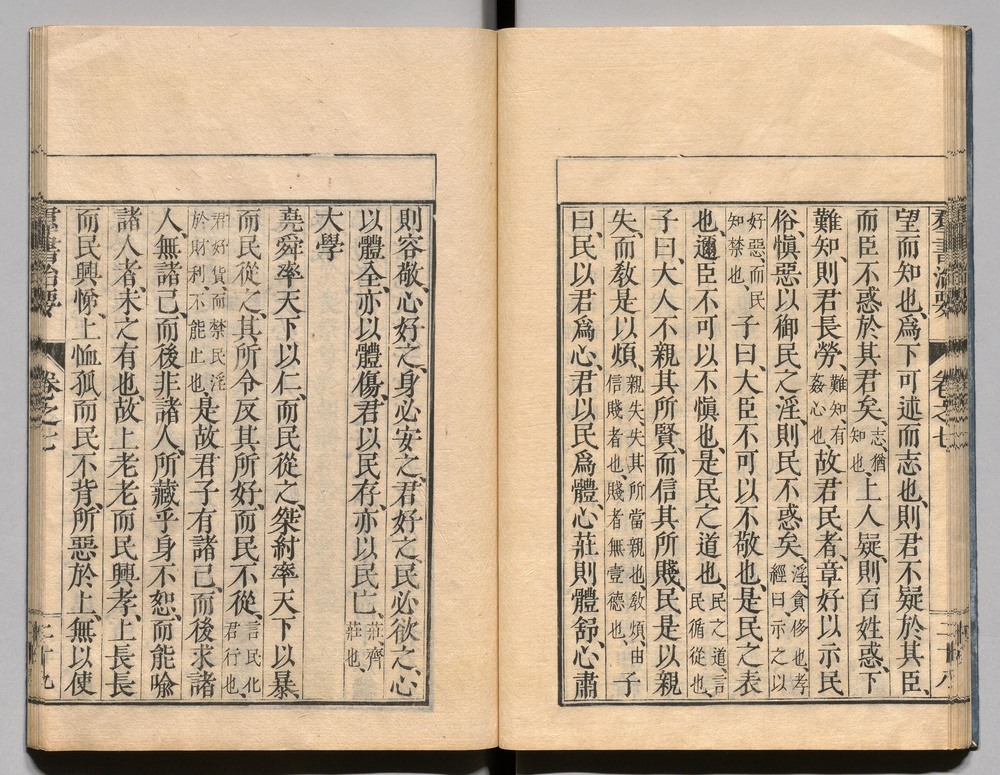 羣書治要 卷之七 二十八
望而知也、爲下可述而志也、則君不疑於其臣、
而臣不惑於其君矣、志、猶知也、上人疑、則百姓惑、下
難知、則君長勞、難知、有姦心也、故君民者、章好以示民
俗、愼惡以御民之淫、則民不惑矣、淫、貪侈也、孝經曰、示之以
好惡、而民知禁也、子曰、大臣不可以不敬也、是民之表
也、邇臣不可以不愼也、是民之道也、民之道、言民循從也、
子曰、大人不親其所賢、而信其所賤、民是以親
失、而敎是以煩、親失、失其所當親也、敎煩、由信賤者也、賤者無壹德也、子
曰、民以君爲心、君以民爲體、心莊則體舒、心肅
則容敬、心好之、身必安之、君好之、民必欲之、心
以體全、亦以體傷、君以民存、亦以民亡、莊、齊莊也、
大學
堯舜率天下以仁、而民從之、桀紂率天下以暴、
而民從之、其所令反其所好、而民不從、言民化君行也、
君好貨而禁民淫於財利、不能止也、是故君子有諸己、而後求諸
人、無諸己、而後非諸人、所藏乎身不恕、而能喩
諸人者、未之有也、故上老老而民興孝、上長長
而民興悌、上恤孤而民不背、所惡於上、無以使
羣書治要 卷之七 二十九